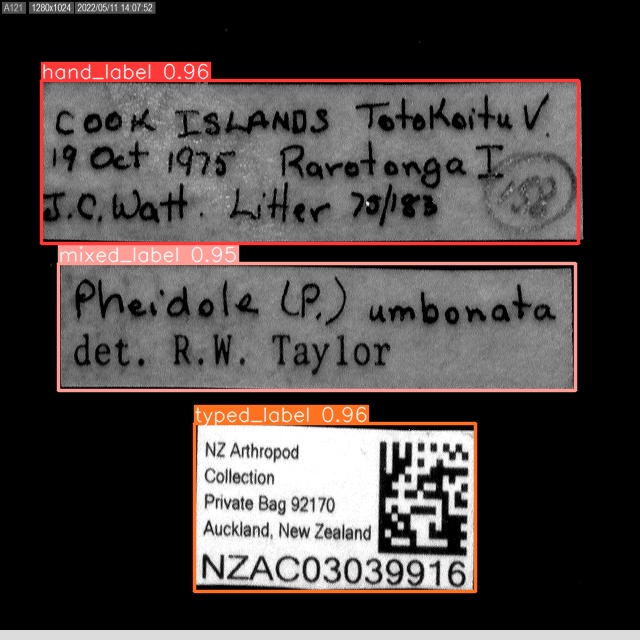 A121 1280x1024 2022/05/11 14:07:52
hand_label 0.96
COOK ISLANDS Totokoitu V.
19 Oct 1975 Rarotonga I
J.C. Watt. Litter 75/183
mixed_label 0.95
Pheidole (P.) umbonata
det. R.W. Taylor
typed_label 0.96
NZ Arthropod
Collection
Private Bag 92170
Auckland, New Zealand
NZAC03039916